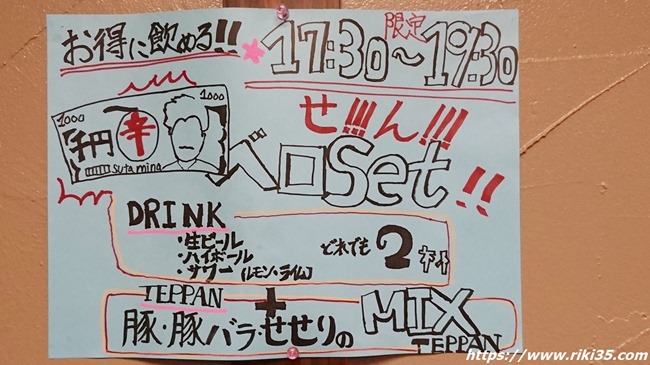 お得に飲める!!
限定
17:30~19:30
1000 1000
千円 辛
suta mina
せ!!!ん!!!
ベロSet!!
DRINK
・生ビール
・ハイボール
・サワー(レモン・ライム)
どれでも2杯
+
TEPPAN
豚・豚バラ・せせりの
MIX
TEPPAN
https://www.riki35.com/